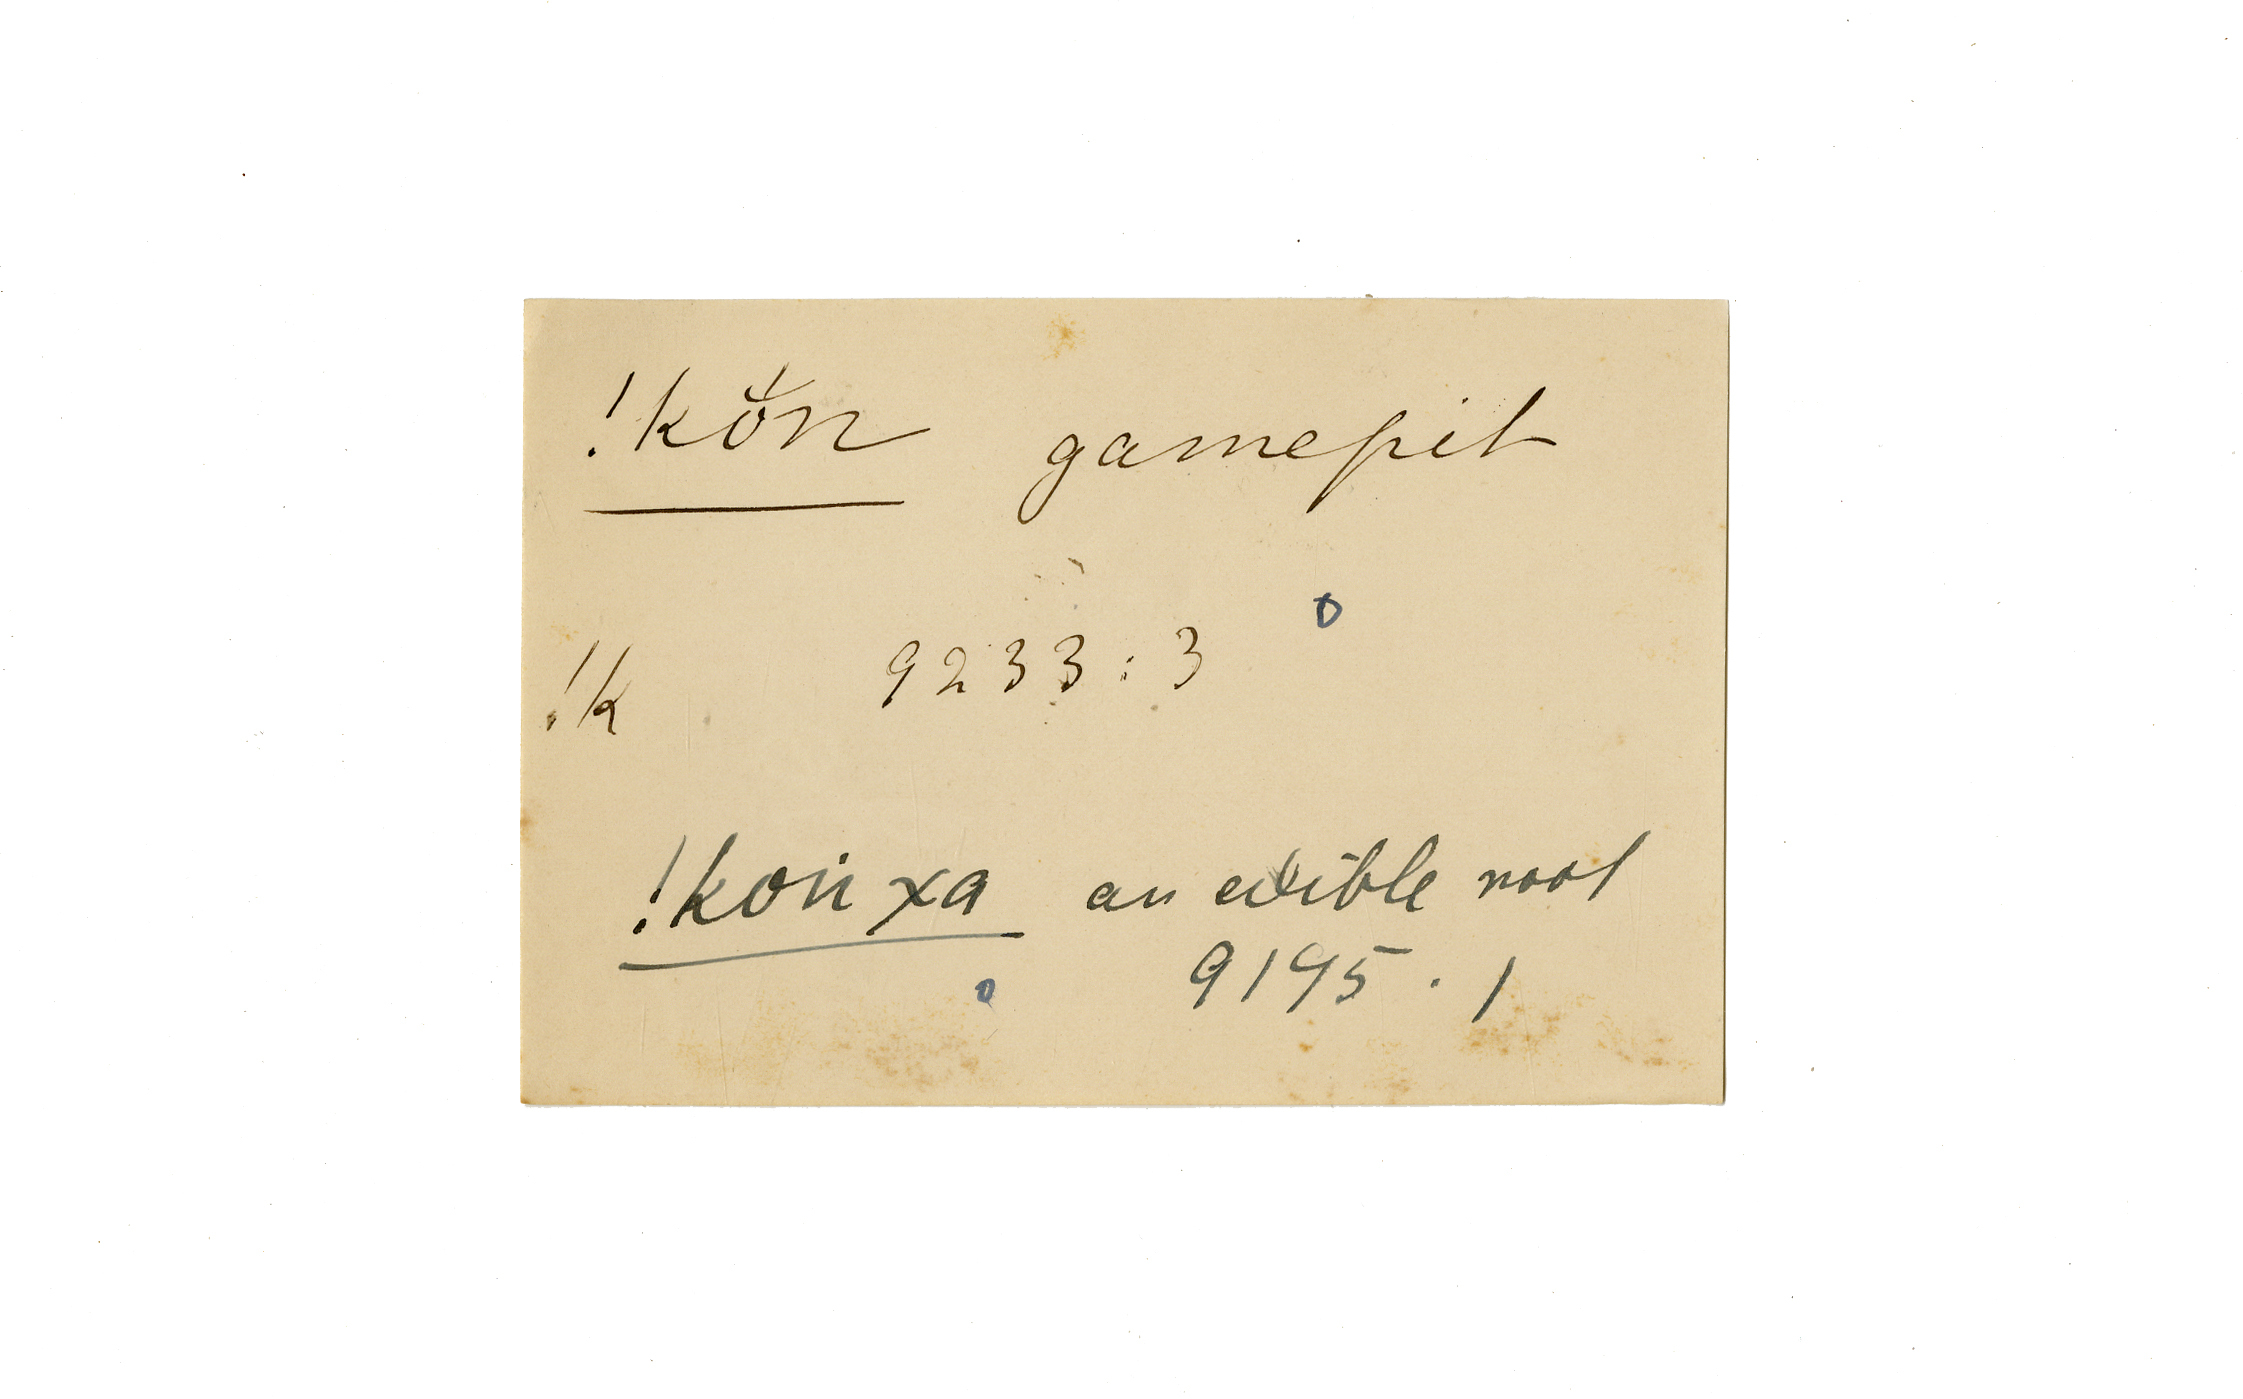 !kŏ́n gamepit
o
!k 9233:3
!koṅ xa an edible root
o 9195.1